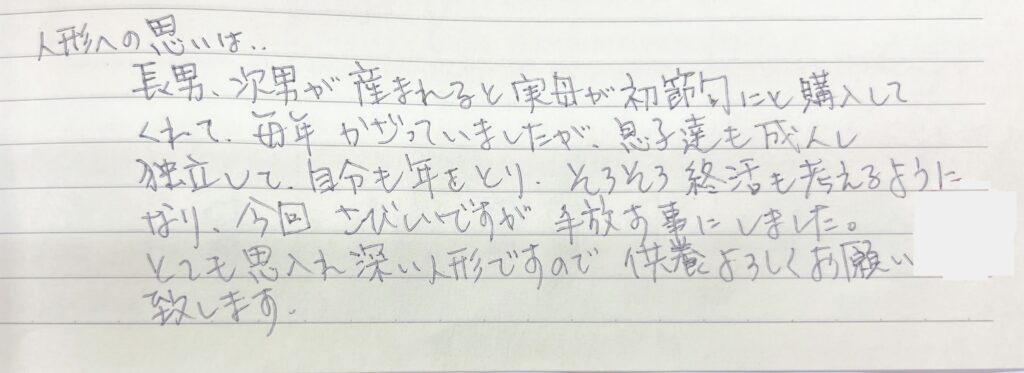 人形への思いは..
長男、次男が産まれると実母が初節句にと購入して
くれて、毎年かざっていましたが、息子達も成人し
独立して、自分も年をとり、そろそろ終活も考えるように
なり、今回さびしいですが手放す事にしました。
とても思入れ深い人形ですので供養よろしくお願い
致します.